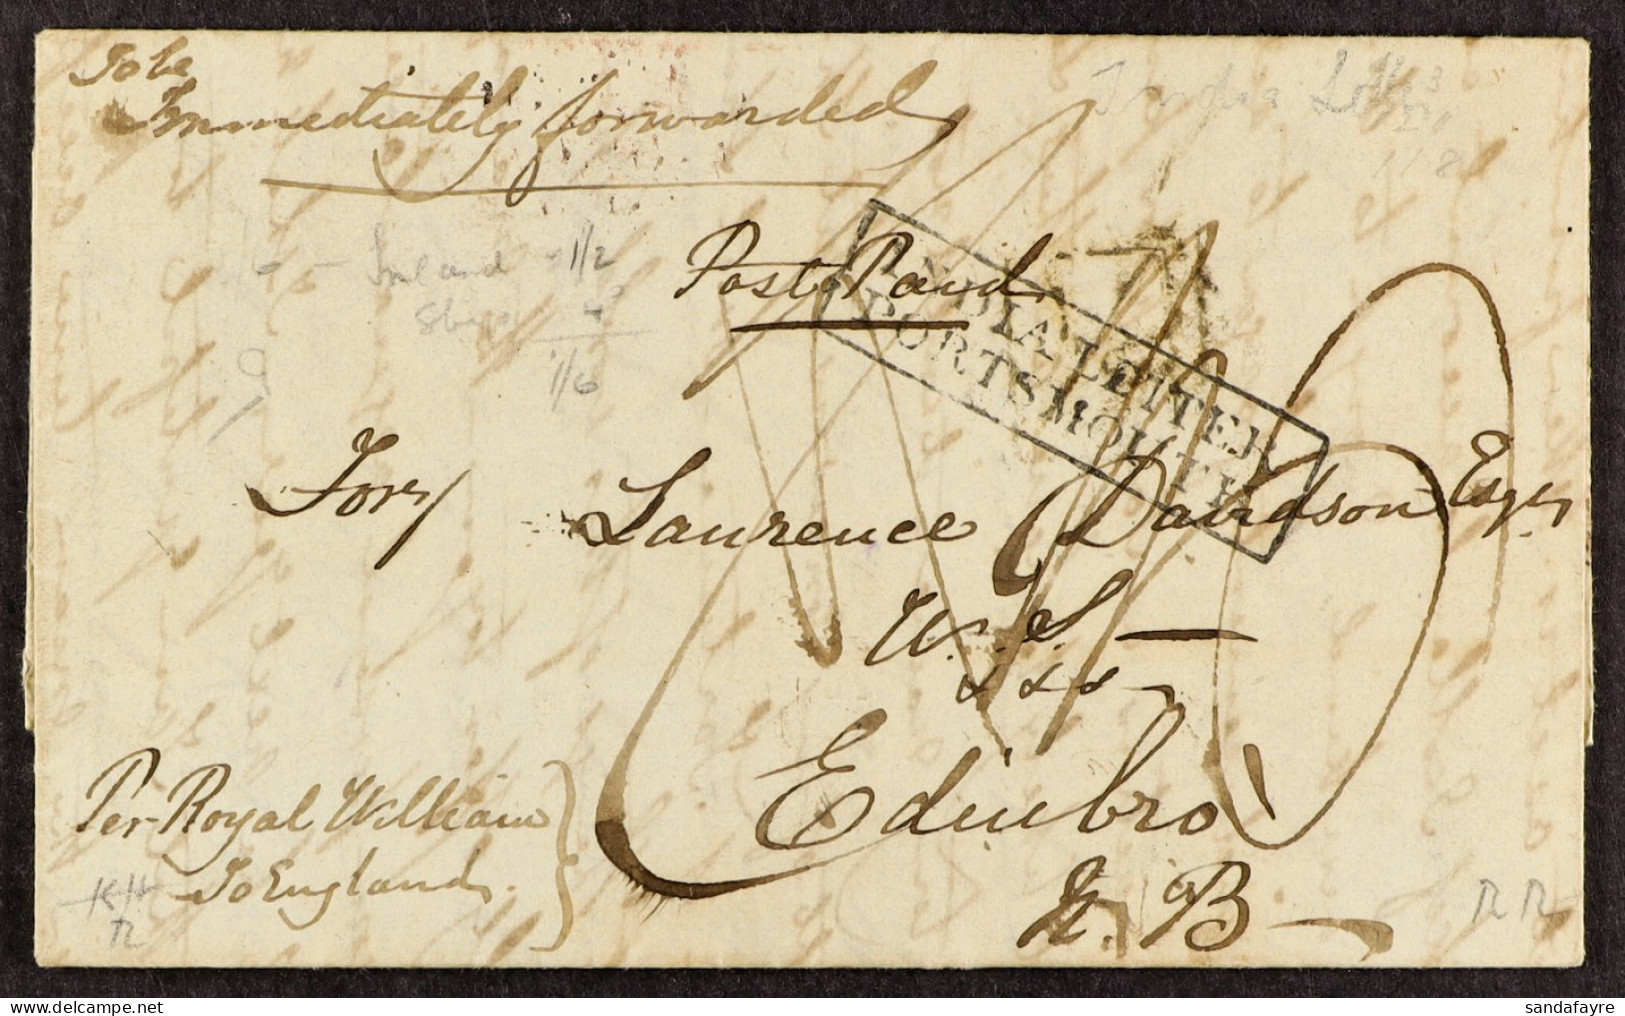 To be
Immediately forwarded
India Letter
Post Paid
INDIA LETTER
PORTSMOUTH
Inland 1/2
Ship
1/6
For Laurence Davidson Esqr
W. S.
Edinbro
N. B
Per Royal William
To England
R R
sandafayre